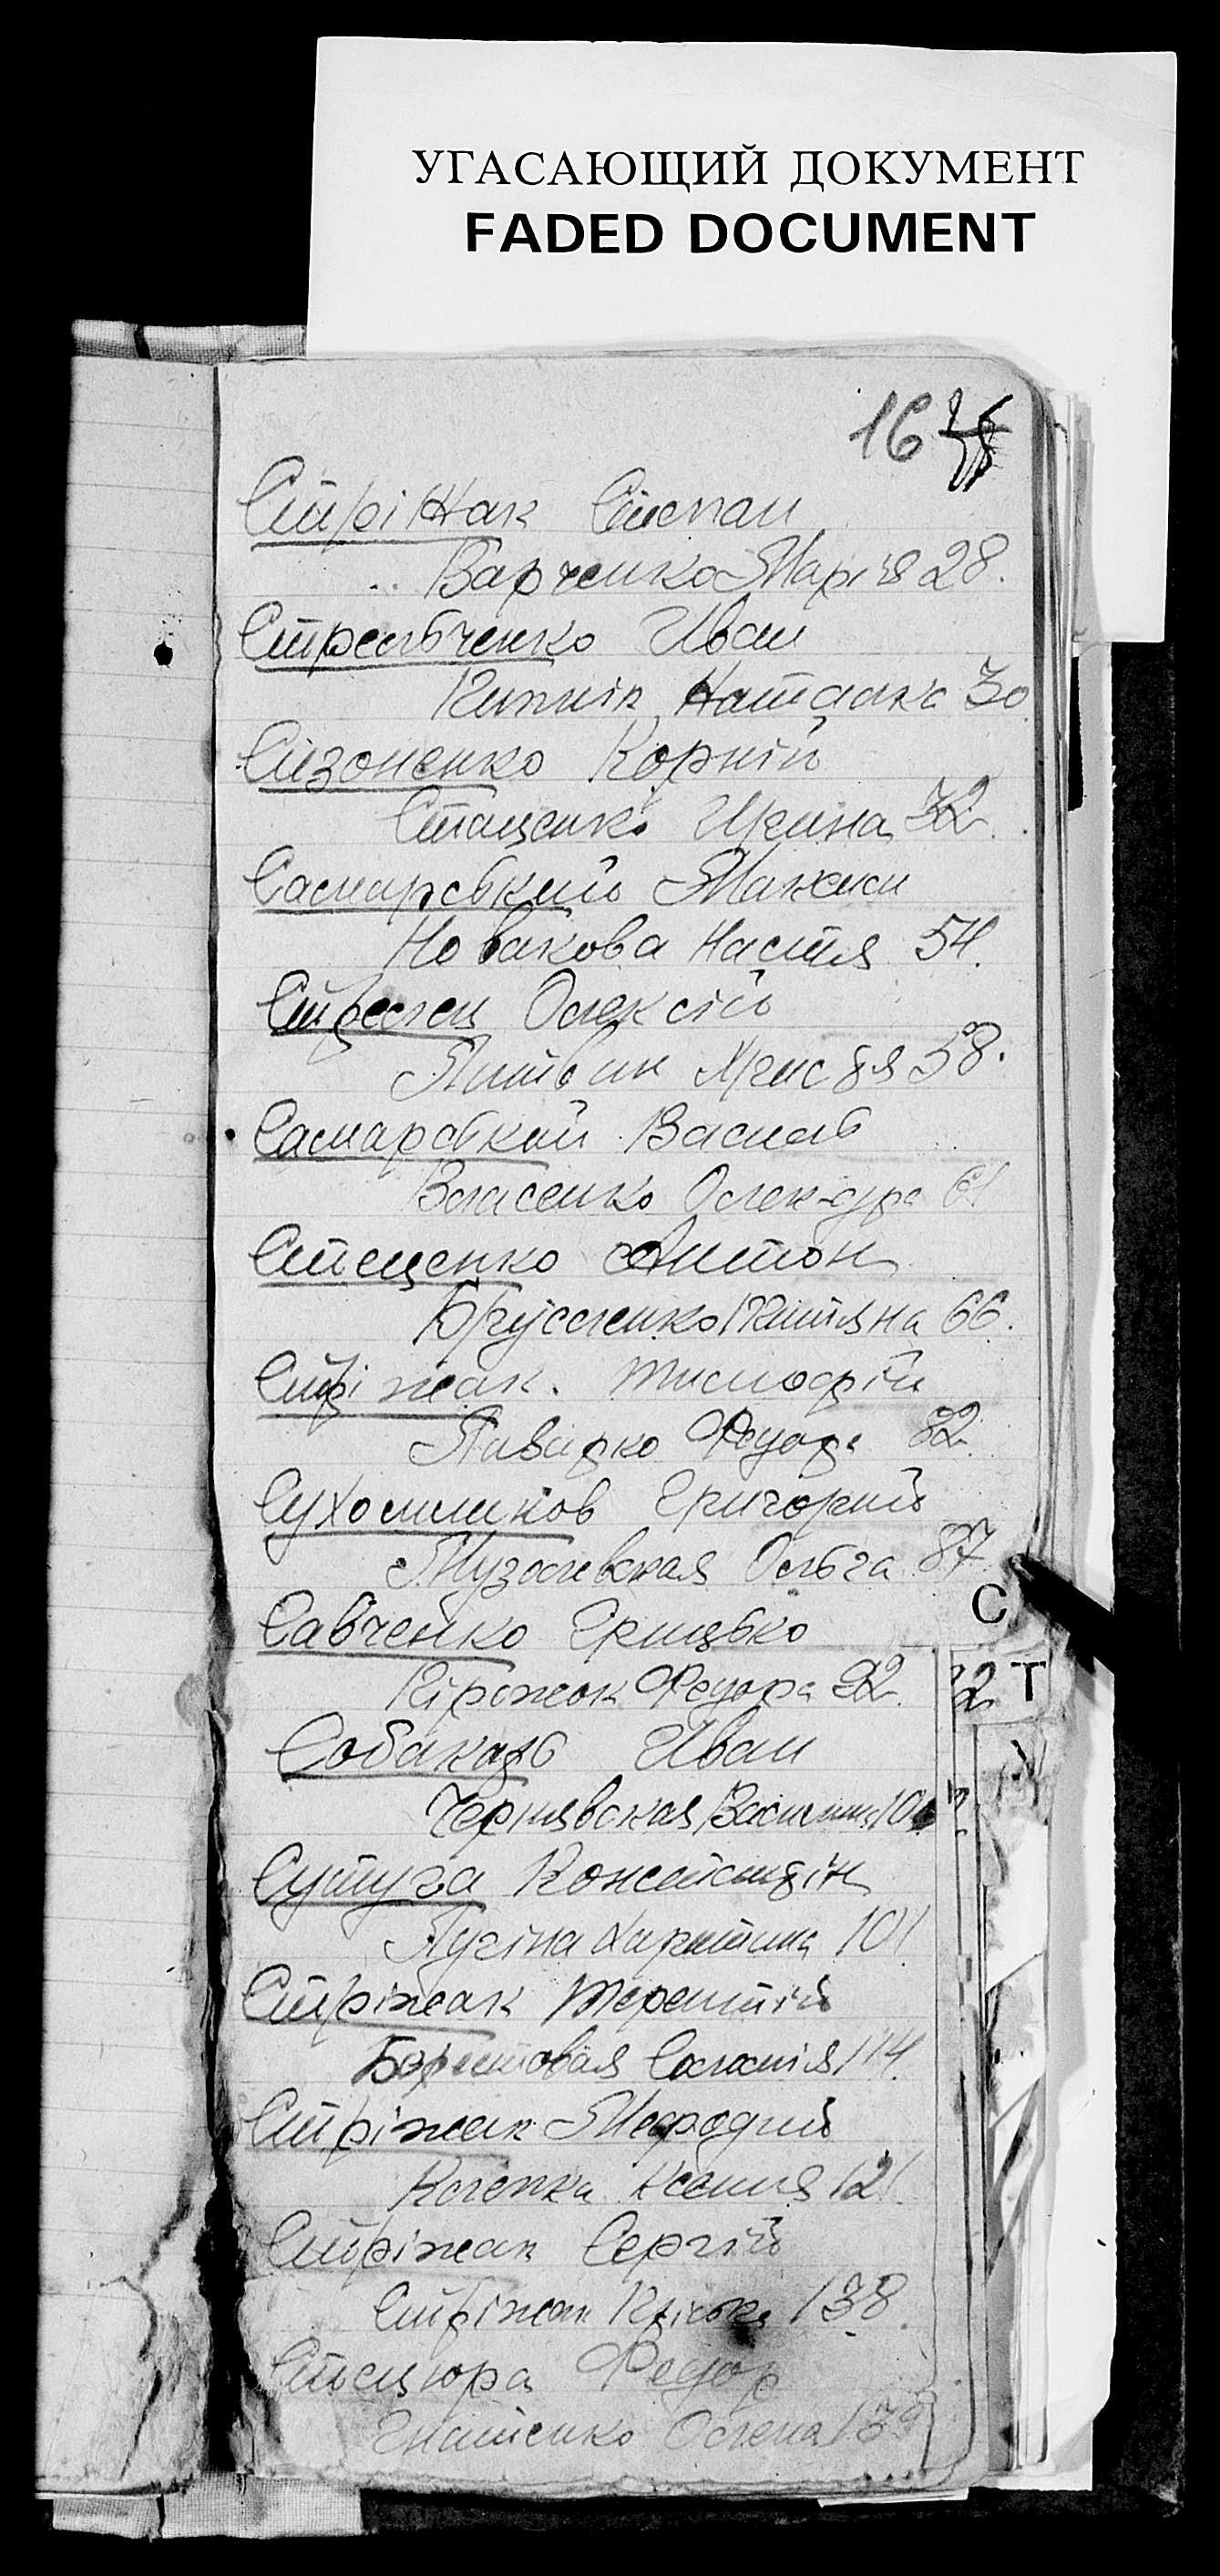 УГАСАЮЩИЙ ДОКУМЕНТ
FADED DOCUMENT
16
Стріжак Степан
Варченко Марія 28.
Стрельченко Иван
Наталка 30
Сизоненко Корній
Стаценко Ирина 32.
Самарський Максим
Новакова Настя 54.
Стрелец Олексій
Литвин Христя 58.
Самарский Василь
Власенко Олек-дра 61
Стеценко Антон
Брусленко Титяна 66.
Стріжак. Тимофій
Федора 82
Сухомлинов Григорий
Музалевская Ольга 87
С
Савченко Грицько
Федора 92.
Т
Собакарь Иван
Чернявская
Сутуга Константін
Лугіна Харитина 101
Стріжак Терентій
Соломія 114.
Стріжак Мефодий
Ксения 121
Стріжак Сергій
Стріжак 138.
Стецюра Федор
Гнатенко Олена 139